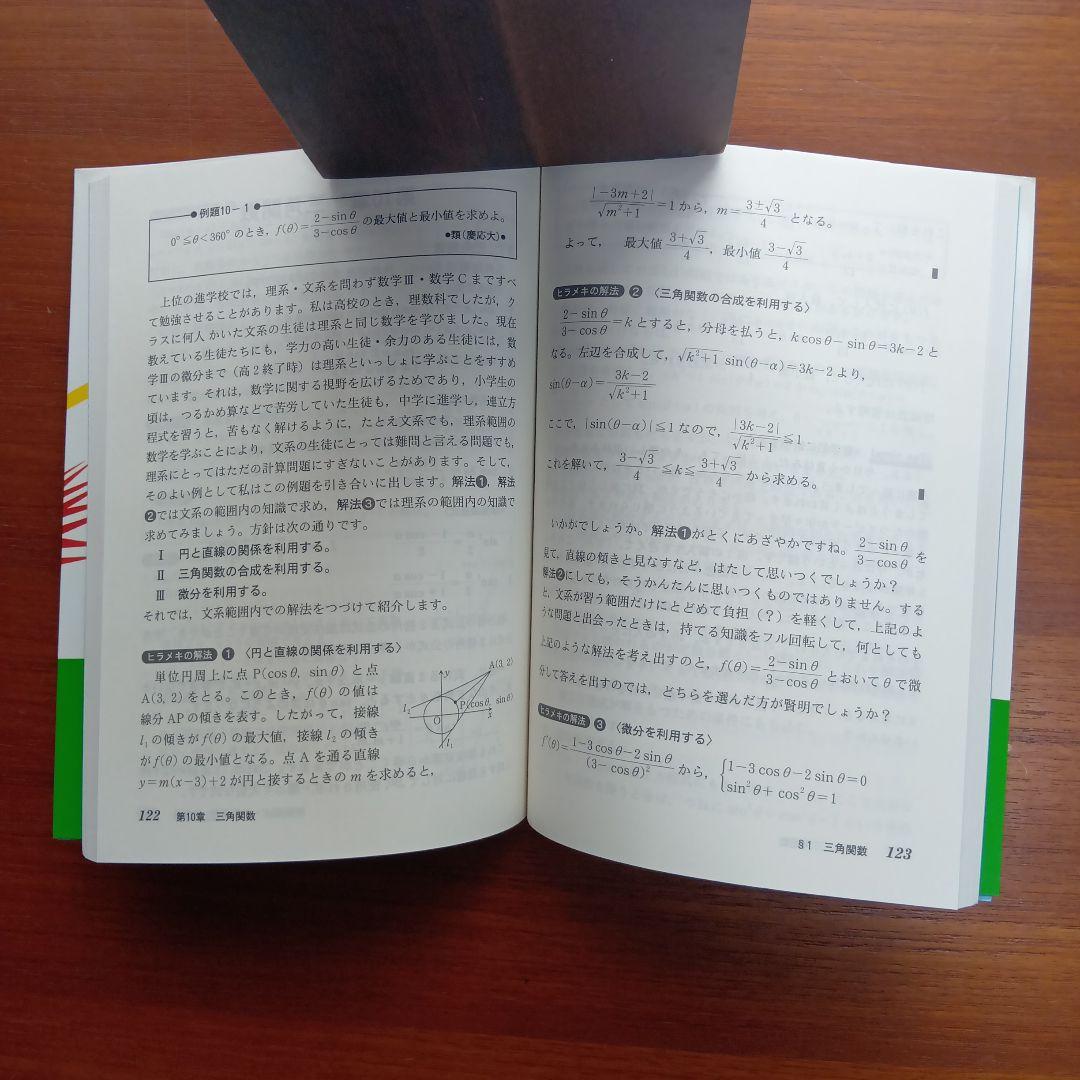 例題10-1
0°≦θ<360°のとき，f(θ)=\frac{2-sinθ}{3-cosθ}の最大値と最小値を求めよ。
●類(慶応大)●
上位の進学校では，理系・文系を問わず数学Ⅲ・数学Cまですべ
て勉強させることがあります。私は高校のとき，理数科でしたが，ク
ラスに何人かいた文系の生徒は理系と同じ数学を学びました。現在
教えている生徒たちにも，学力の高い生徒・余力のある生徒には，数
学Ⅲの微分まで（高2終了時）は理系といっしょに学ぶことをすすめ
ています。それは，数学に関する視野を広げるためであり，小学生の
頃は，つるかめ算などで苦労していた生徒も，中学に進学し，連立方
程式を習うと，苦もなく解けるように，たとえ文系でも，理系範囲の
数学を学ぶことにより，文系の生徒にとっては難問と言える問題でも，
理系にとってはただの計算問題にすぎないことがあります。そして，
そのよい例として私はこの例題を引き合いに出します。解法❶，解法
❷では文系の範囲内の知識で求め，解法❸では理系の範囲内の知識で
求めてみましょう。方針は次の通りです。
Ⅰ 円と直線の関係を利用する。
Ⅱ 三角関数の合成を利用する。
Ⅲ 微分を利用する。
それでは，文系範囲内での解法をつづけて紹介します。
ヒラメキの解法 ❶ 〈円と直線の関係を利用する〉
単位円周上に点 P(cosθ, sinθ) と点
A(3, 2)をとる。このとき，f(θ) の値は
線分APの傾きを表す。したがって，接線
l₁の傾きがf(θ)の最大値，接線l₂の傾き
がf(θ)の最小値となる。点Aを通る直線
y=m(x-3)+2が円と接するときのmを求めると，
y
A(3, 2)
P(cosθ, sinθ)
l₂
x
O
l₁
122 第10章 三角関数
\frac{|-3m+2|}{\sqrt{m²+1}}=1から，m=\frac{3±\sqrt{3}}{4}となる。
よって， 最大値\frac{3+\sqrt{3}}{4}，最小値\frac{3-\sqrt{3}}{4}
ヒラメキの解法 ❷ 〈三角関数の合成を利用する〉
\frac{2-sinθ}{3-cosθ}=kとすると，分母を払うと，kcosθ-sinθ=3k-2と
なる。左辺を合成して，\sqrt{k²+1} sin(θ-α)=3k-2より，
sin(θ-α)=\frac{3k-2}{\sqrt{k²+1}}
ここで，|sin(θ-α)|≦1なので，\frac{|3k-2|}{\sqrt{k²+1}}≦1．
これを解いて，\frac{3-\sqrt{3}}{4}≦k≦\frac{3+\sqrt{3}}{4}から求める。
いかがでしょうか。解法❶がとくにあざやかですね。\frac{2-sinθ}{3-cosθ}を
見て，直線の傾きと見なすなど，はたして思いつくでしょうか？
解法❷にしても，そうかんたんに思いつくものではありません。する
と，文系が習う範囲だけにとどめて負担（？）を軽くして，上記のよ
うな問題と出会ったときは，持てる知識をフル回転して，何としても
上記のような解法を考え出すのと，f(θ)=\frac{2-sinθ}{3-cosθ}とおいてθで微
分して答えを出すのでは，どちらを選んだ方が賢明でしょうか？
ヒラメキの解法 ❸ 〈微分を利用する〉
f'(θ)=\frac{1-3cosθ-2sinθ}{(3-cosθ)²}から，{1-3cosθ-2sinθ=0
sin²θ+cos²θ=1
§1 三角関数 123